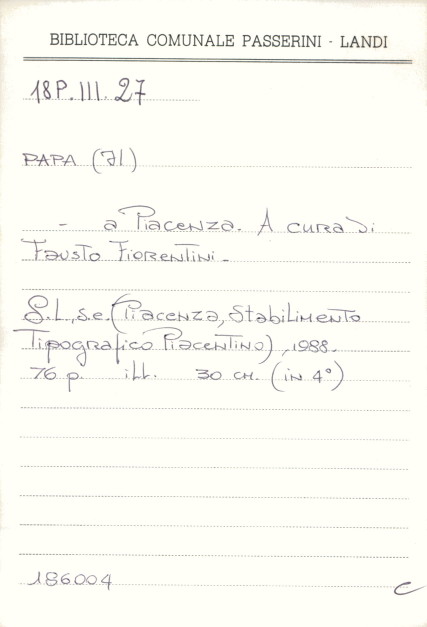 BIBLIOTECA COMUNALE PASSERINI - LANDI
18P.III.27
PAPA (Il)
- a Piacenza. A cura di
Fausto Fiorentini.
S.l., s.e. (Piacenza, Stabilimento
Tipografico Piacentino), 1988.
76 p. ill. 30 cm. (in 4°)
186004
C